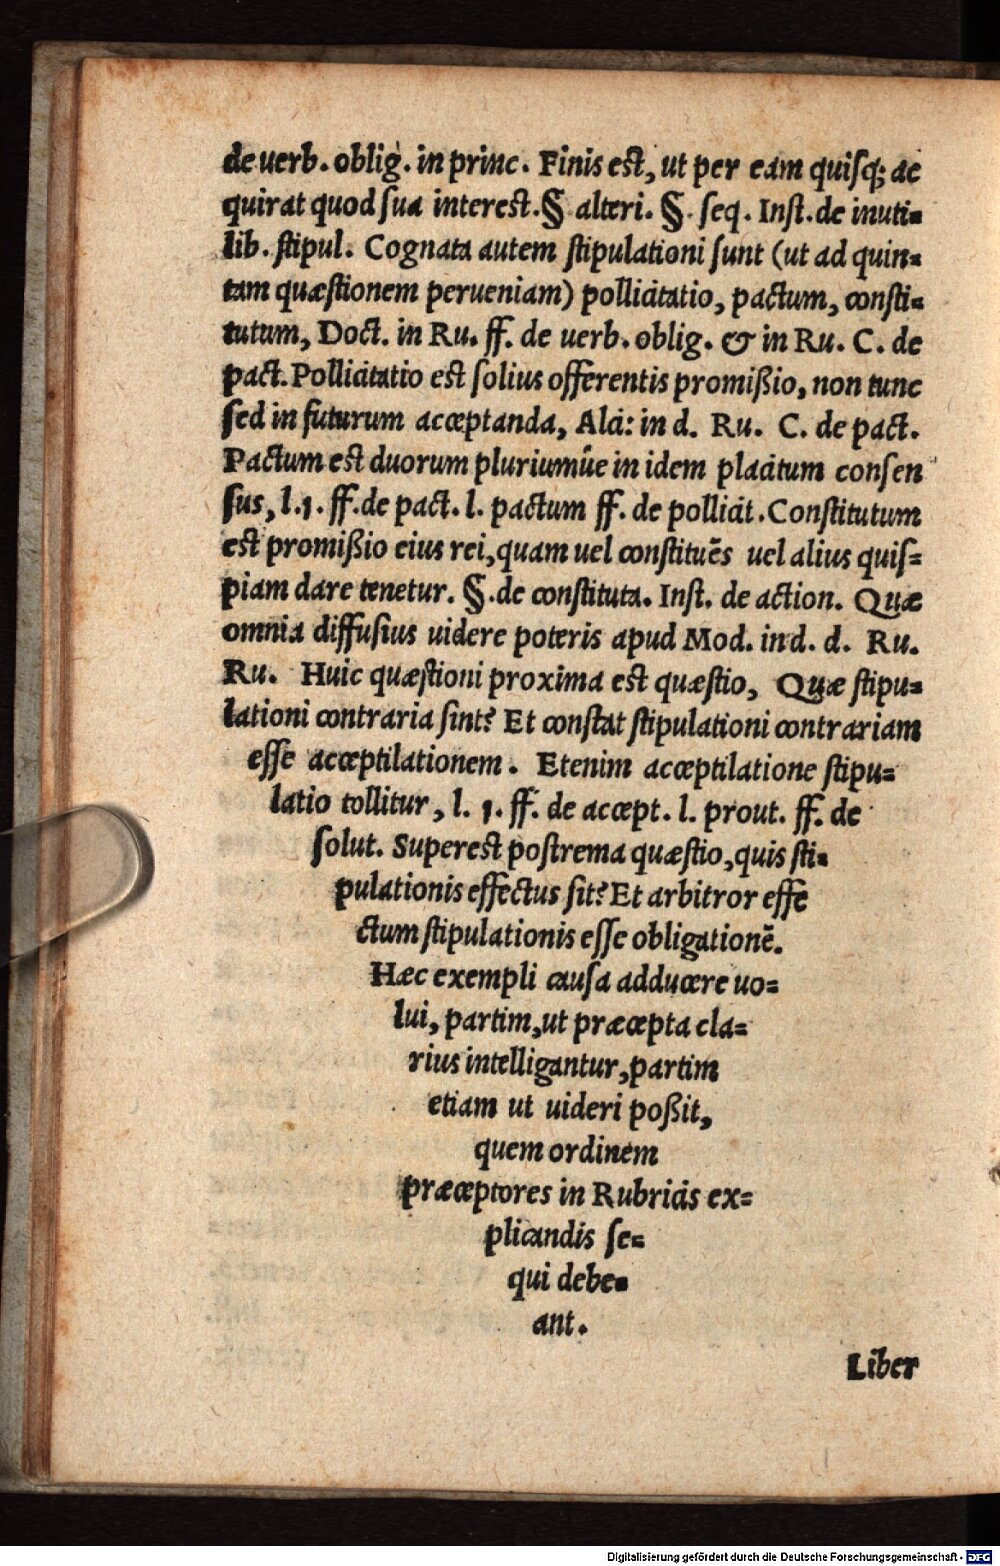 de uerb. oblig. in princ. Finis est, ut per eam quisq; ac
quirat quod sua interest. § alteri. § seq. Inst. de inuti=
lib. stipul. Cognata autem stipulationi sunt (ut ad quin=
tam quæstionem perueniam) pollicitatio, pactum, consti=
tutum, Doct. in Ru. ff. de uerb. oblig. & in Ru. C. de
pact. Pollicitatio est solius offerentis promißio, non tunc
sed in futurum acceptanda, Alci: in d. Ru. C. de pact.
Pactum est duorum pluriumúe in idem placitum consen
sus, l.1. ff. de pact. l. pactum ff. de pollicit. Constitutum
est promißio eius rei, quam uel constituẽs uel alius quis=
piam dare tenetur. §. de constituta. Inst. de action. Quæ
omnia diffusius uidere poteris apud Mod. in d. d. Ru.
Ru. Huic quæstioni proxima est quæstio, Quæ stipu=
lationi contraria sint? Et constat stipulationi contrariam
esse acceptilationem. Etenim acceptilatione stipu=
latio tollitur, l. 1. ff. de accept. l. prout. ff. de
solut. Superest postrema quæstio, quis sti=
pulationis effectus sit? Et arbitror effe
ctum stipulationis esse obligationẽ.
Hæc exempli causa adducere uo=
lui, partim, ut præcepta cla=
rius intelligantur, partim
etiam ut uideri poßit,
quem ordinem
præceptores in Rubricis ex=
plicandis se=
qui debe=
ant.
Liber
Digitalisierung gefördert durch die Deutsche Forschungsgemeinschaft - DFG